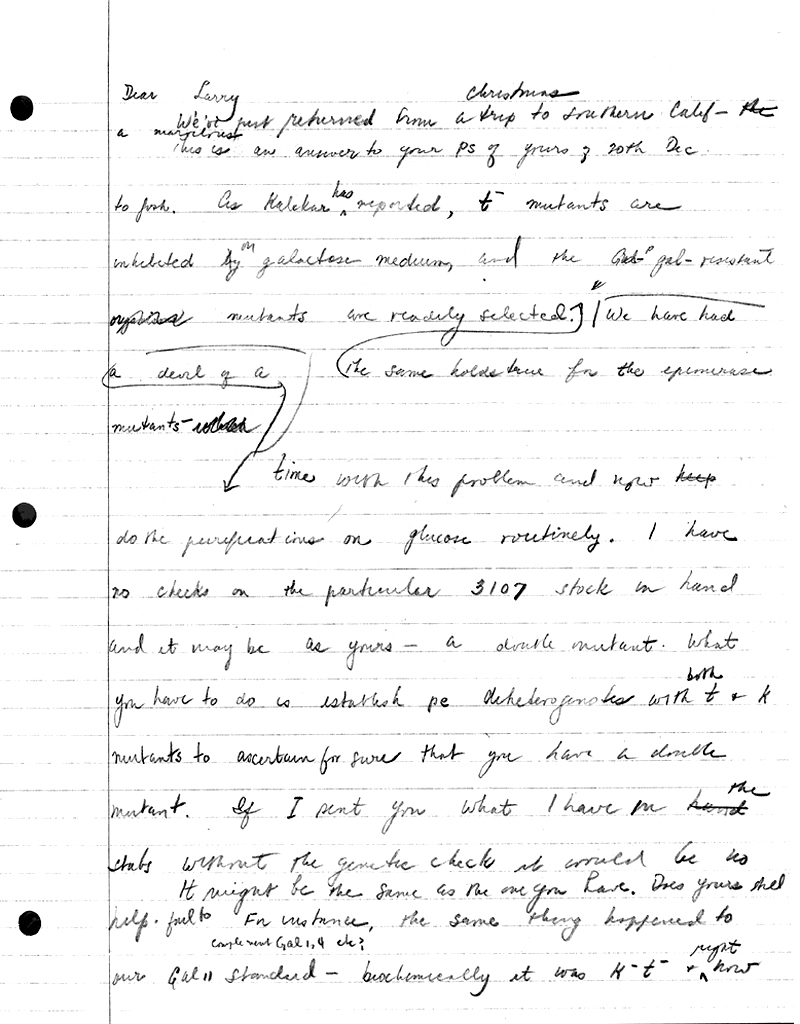 Dear Larry
Christmas
We've just returned from a trip to southern Calif - the
a marvelous
This is an answer to your PS of yours of 20th Dec.
to Josh. As Kalckar has reported, t- mutants are
inhibited by on galactose medium, and the gal-resistant
mutants are readily selected.] / We have had
a devil of a (The same holds true for the epimerase
mutants -
time with this problem and now keep
do the purifications on glucose routinely. I have
no checks on the particular 3107 stock in hand
and it may be as yours - a double mutant. What
you have to do is establish diheterogenotes with both t + k
mutants to ascertain for sure that you have a double
mutant. If I sent you what I have in hand the
stabs without the genetic check it would be no
It might be the same as the one you have. Does yours still
help. fail to For instance, the same thing happened to
complement Gal 1, 4 etc?
our Gal 11 standard - biochemically it was K- t- + right now